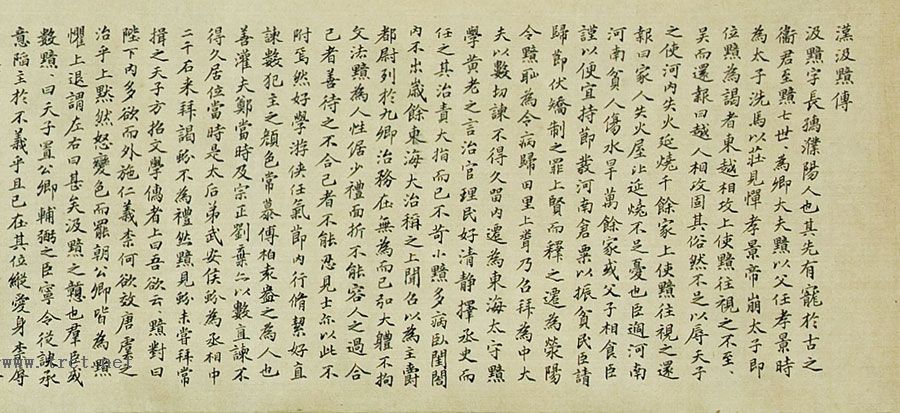 漢汲黯傳
汲黯字長孺濮陽人也其先有寵於古之
衞君至黯七世為卿大夫黯以父任孝景時
為太子洗馬以莊見憚孝景帝崩太子即
位黯為謁者東越相攻上使黯往視之不至、
吳而還報曰越人相攻固其俗然不足以辱天子
之使河内失火延燒千餘家上使黯往視之還
報曰家人失火屋比延燒不足憂也臣過河南
河南貧人傷水旱萬餘家或父子相食臣
謹以便宜持節發河南倉粟以振貧民臣請
歸節伏矯制之罪上賢而釋之遷為滎陽
令黯恥為令病歸田里上聞乃召拜為中大
夫以數切諫不得久留内遷為東海太守黯
學黃老之言治官理民好清静擇丞史而
任之其治責大指而已不苛小黯多病卧閨閤
内不出歲餘東海大治稱之上聞召以為主爵
都尉列於九卿治務在無為而已弘大體不拘
文法黯為人性倨少禮面折不能容人之過合
己者善待之不合己者不能忍見士亦以此不
附焉然好學游俠任氣節内行脩絜好直
諫數犯主之顏色常慕傅柏袁盎之為人也
善灌夫鄭當時及宗正劉棄亦以數直諫不
得久居位當時是太后弟武安侯蚡為丞相中
二千石来拜謁蚡不為禮然黯見蚡未嘗拜常
揖之天子方招文學儒者上曰吾欲云、黯對曰
陛下内多欲而外施仁義柰何欲效唐虞之
治乎上黙然怒變色而罷朝公卿皆為黯
懼上退謂左右曰甚矣汲黯之戇也羣臣或
數黯、曰天子置公卿輔弼之臣寧令從諛承
意陷主於不義乎且已在其位縱愛身柰辱